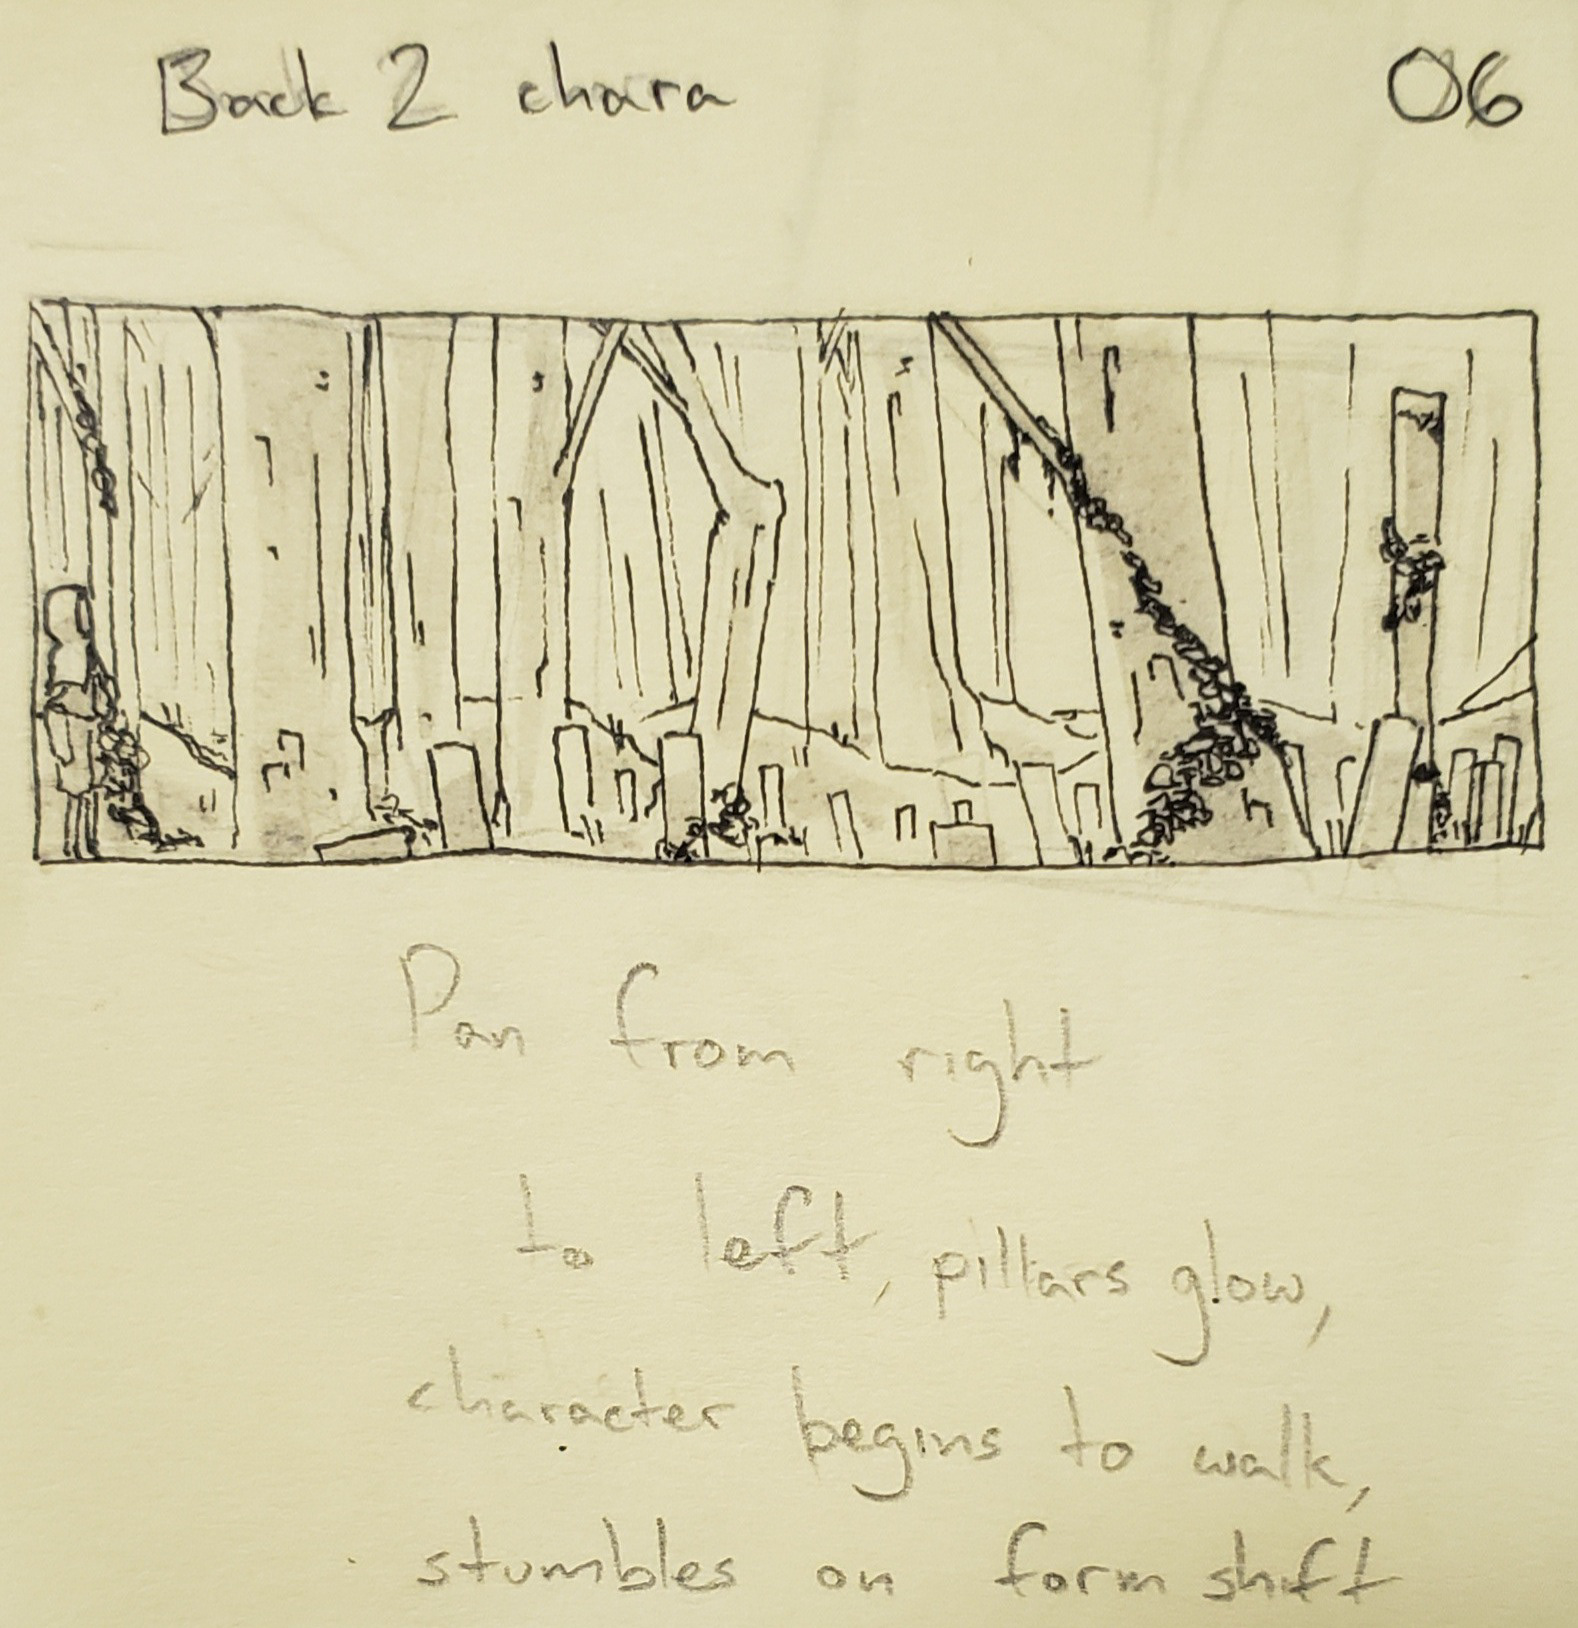 Back 2 chara
06
Pan from right
to left, pillars glow,
character begins to walk,
stumbles on form shift